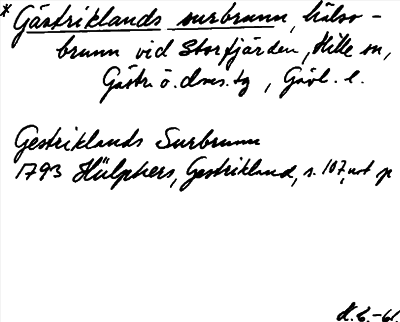 * Gästriklands surbrunn, hälso-
brunn vid Storfjärden, Hille sn,
Gästr. ö. dms. tg, Gävl. l.
Gestriklands Surbrunn
1793 Hülphers, Gestrikland, s. 107, not p